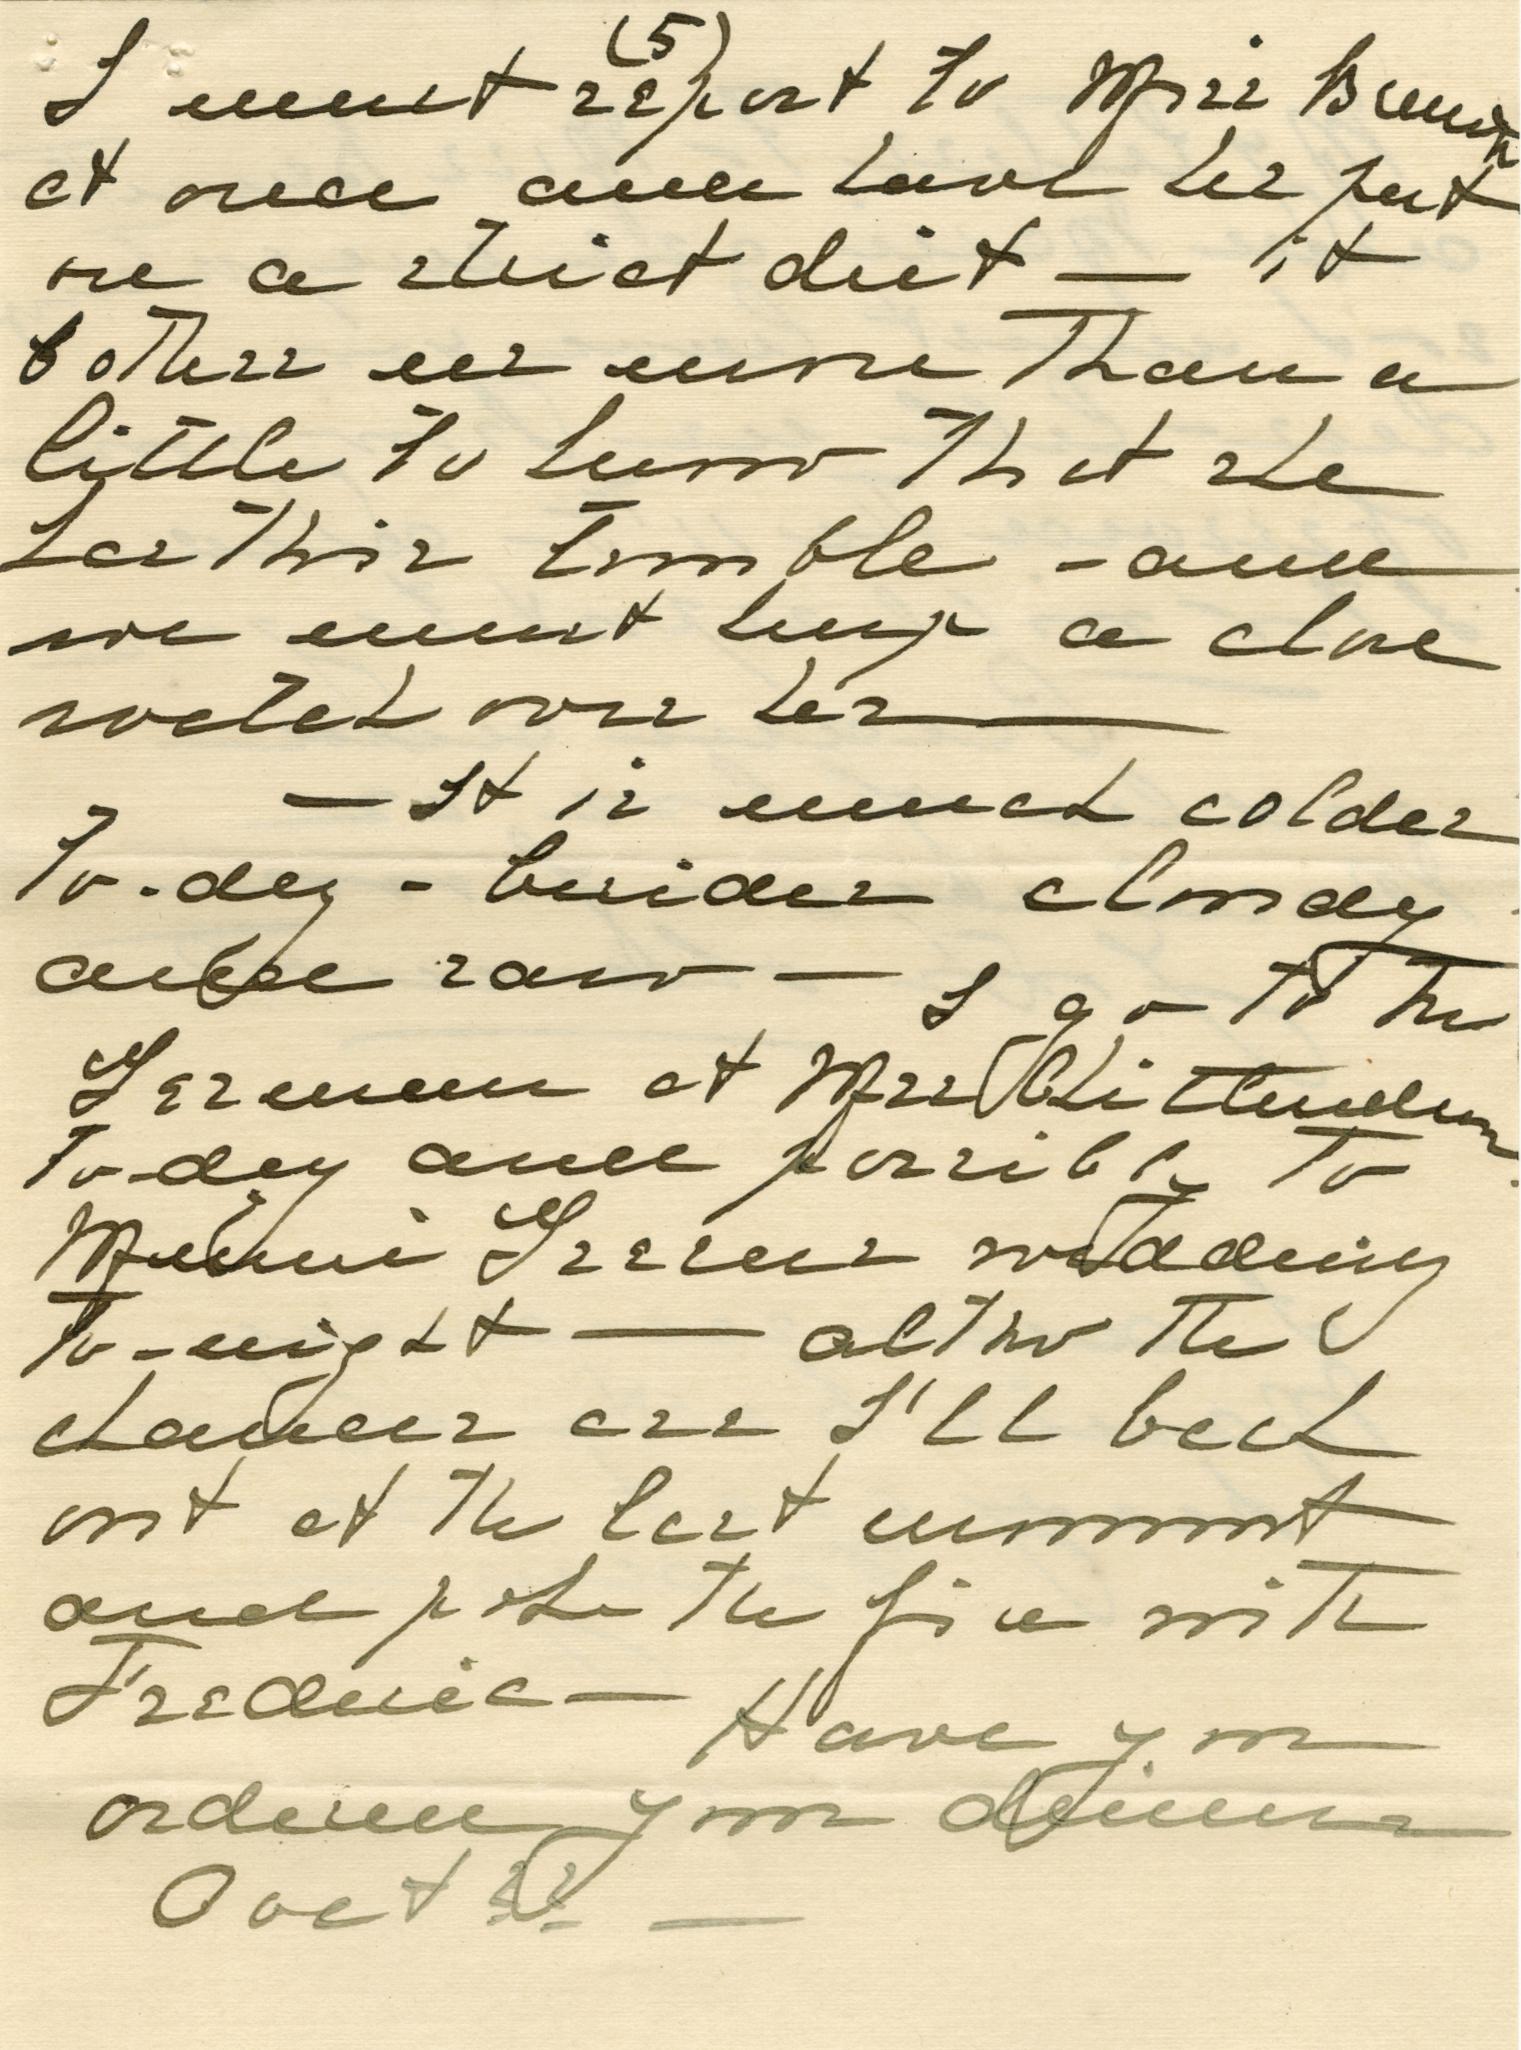 (5)
I must report to Miss Brown
at once and have her put
on a strict diet — it
bothers me more than a
little to know that she
has this trouble - and
we must keep a close
watch over her —
— It is much colder
to-day - besides cloudy
and raw — I go to the
German at Mrs Chittenden
to-day and possibly to
Minni Greene wedding
to-night — altho the
chances are I'll back
out at the last moment
and poke the fire with
Frederic — Have you
ordered your dinner
—